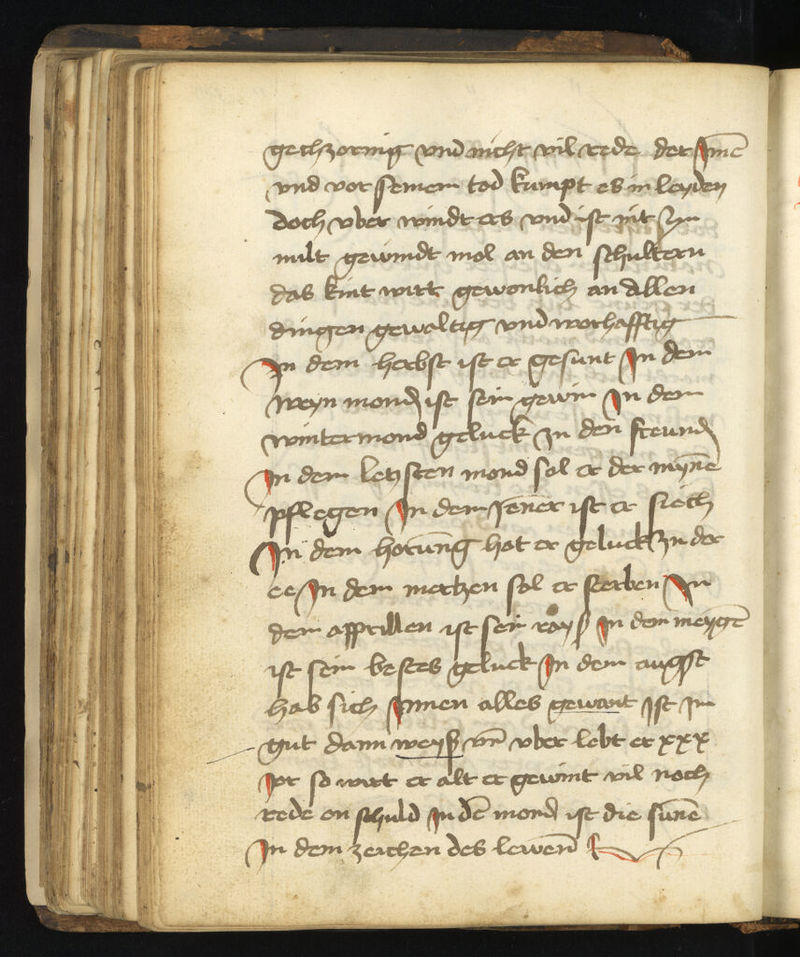 gechzornig vnd nicht vil rede der Jme
vnd vor seinem tod kumpt es in leyden
doch vber windt ers vnd ist nit
milt gewindt mol an den schultern
das kint wirt gewonlich an allen
dingen gewaltig vnd worhafftig
In dem herbst ist er gesunt In dem
weyn mond ist sein gewin In dem
wintermond geluck zu den freund
In dem letzsten mond sol er der mynne
pflegen In dem Jenner ist er siech
In dem hornung hat er geluck zu der
ee In dem mertzen sol er sterben In
dem apprillen ist sein rays In dem meyge
ist sein bestes geluck In dem augst
hab sich Jnnen alles gewant Ist Im
gut dann weyß vn vber lebt er xxx
Jor so wirt er alt er gewint vil noch
rede on schuld In de mond ist die sunne
In dem zeichen des lewen